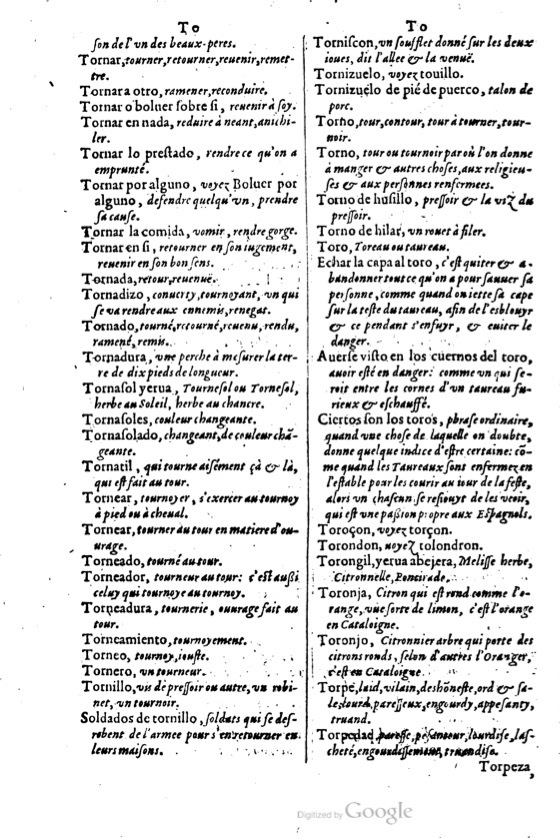 To
son de l'vn des beaux-peres.
Tornar, tourner, retourner, reuenir, remet-
tre.
Tornar a otro, ramener, reconduire.
Tornar o boluer sobre si, reuenir à soy.
Tornar en nada, reduire à neant, anichi-
ler.
Tornar lo prestado, rendre ce qu'on a
emprunté.
Tornar por alguno, voyez Boluer por
alguno, defendre quelqu'vn, prendre
sa cause.
Tornar la comida, vomir, rendre gorge.
Tornar en si, retourner en son iugement,
reuenir en son bon sens.
Tornada, retour, reuenuë.
Tornadizo, conuerty, tournoyant, vn qui
se va rendre aux ennemis, renegat.
Tornado, tourné, retourné, reuenu, rendu,
ramené, remis.
Tornadura, vne perche à mesurer la ter-
re de dix pieds de longueur.
Tornasol yerua, Tournesol ou Tornesol,
herbe au Soleil, herbe au chancre.
Tornasoles, couleur changeante.
Tornasolado, changeant, de couleur chã-
geante.
Tornatil, qui tourne aisément çà & là,
qui est fait au tour.
Tornear, tournoyer, s'exercer au tournoy
à pied ou à cheual.
Tornear, tourner au tour en matiere d'ou-
urage.
Torneado, tourné au tour.
Torneador, tourneur au tour: c'est aussi
celuy qui tournoye au tournoy.
Torneadura, tournerie, ouurage fait au
tour.
Torneamiento, tournoyement.
Torneo, tournoy, iouste.
Tornero, vn tourneur.
Tornillo, vis de pressoir ou autre, vn robi-
net, vn tournoir.
Soldados de tornillo, soldats qui se des-
robent de l'armee pour s'en retourner en
leurs maisons.
To
Torniscon, vn soufflet donné sur les deux
ioues, dit l'allee & la venuë.
Tornizuelo, voyez touillo.
Tornizuelo de pié de puerco, talon de
porc.
Torno, tour, contour, tour à tourner, tour-
noir.
Torno, tour ou tournoir par où l'on donne
à manger & autres choses, aux religieu-
ses & aux personnes renfermees.
Torno de husillo, pressoir & la viz du
pressoir.
Torno de hilar, vn rouet à filer.
Toro, Toreau ou taureau.
Echar la capa al toro, c'est quiter & a-
bandonner tout ce qu'on a pour sauuer sa
personne, comme quand on iette sa cape
sur la teste du taureau, afin de l'esblouyr
& ce pendant s'enfuyr, & euiter le
danger.
Auerse visto en los cuernos del toro,
auoir esté en danger: comme vn qui se-
roit entre les cornes d'vn taureau fu-
rieux & eschauffé.
Ciertos son los toros, phrase ordinaire,
quand vne chose de laquelle on doubte,
donne quelque indice d'estre certaine: cõ-
me quand les Taureaux sont enfermez en
l'estable pour les courir au iour de la feste,
alors vn chascun se resiouyt de les veoir,
qui est vne passion propre aux Espagnols.
Toroçon, voyez torçon.
Torondon, voyez tolondron.
Torongil, yerua abejera, Melisse herbe,
Citronnelle, Poncirade.
Toronja, Citron qui est rond comme l'o-
range, vne sorte de limon, c'est l'orange
en Cataloigne.
Toronjo, Citronnier arbre qui porte des
citrons ronds, selon d'autres l'Oranger,
c'est en Cataloigne.
Torpe, laid, vilain, deshõneste, ord & sa-
le, lourd, paresseux, engourdy, appesanty,
truand.
Torpedad, paresse, pesanteur, lourdise, las-
cheté, engourdissement, truandise.
Torpeza,
Digitized by Google